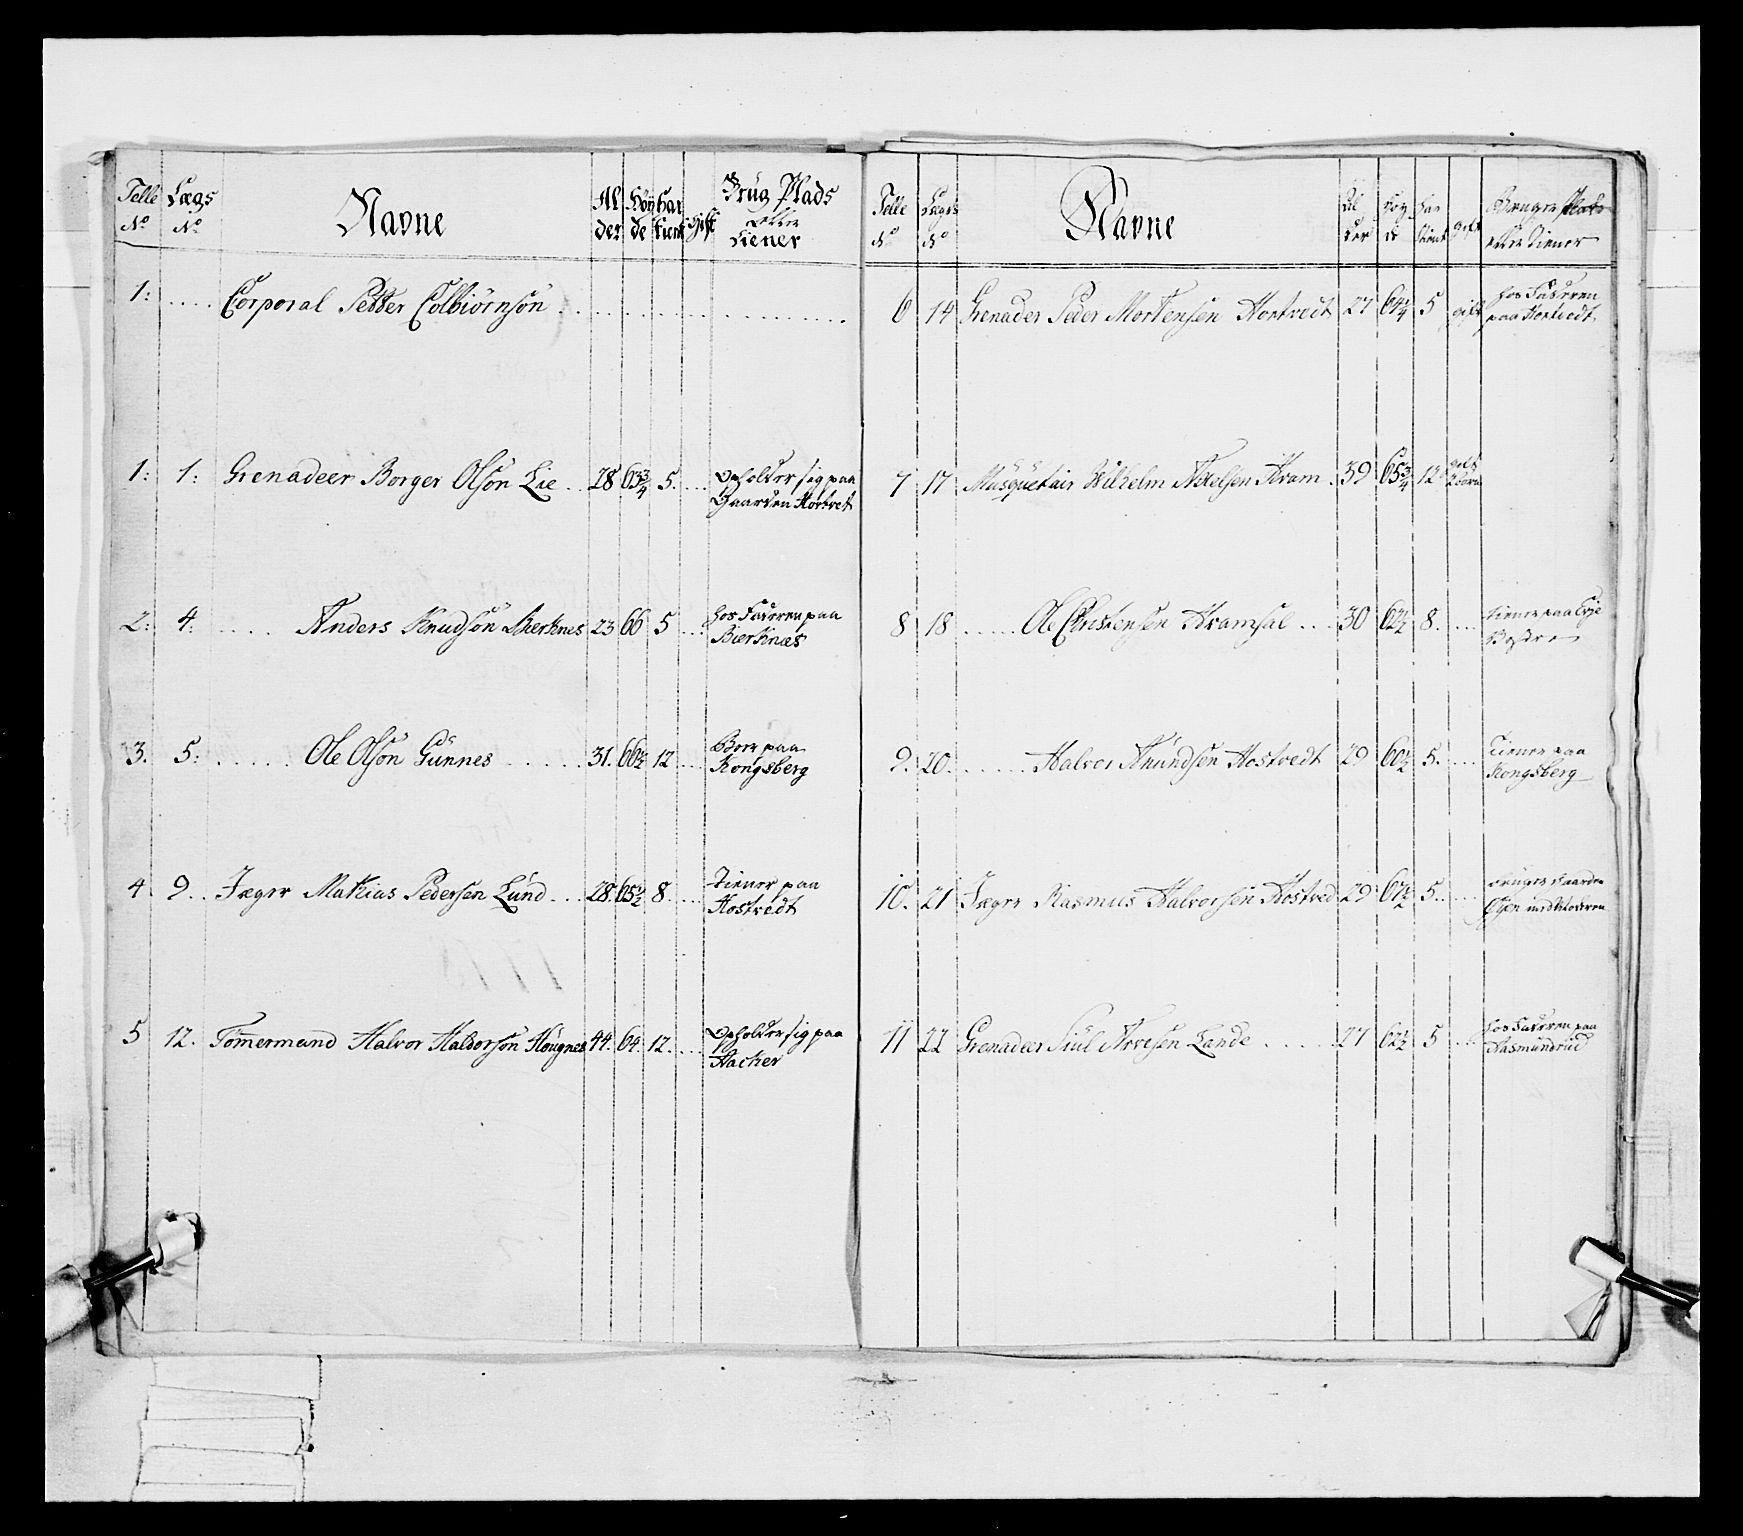 Telle No Lægs No Navne Alder Høyde Har tient Gift Brug Plads eller tiener
1: Corporal Petter Colbiörnsön
1: 1: Grenadeer Borger Olsön Lie 28 63¾ 5. opholder sig paa
Gaarden Hortvet
2: 4: Anders Knudsön Bierknes 23 66 5 hos Faderen paa
Bierknæs
3. 5: Ole Olsön Gunnes 31. 66½ 12 Boer paa
Kongsberg
4 9. Jæger Mathias Pedersen Lund 28. 65½ 8. Tiener paa
Hostvedt
5 12. Tömermand Halvor Haldorsön Hougnes 44. 64. 12. Opholder sig paa
Aacher
Telle No Lægds No Navne Alder Høyde Har tient gift Bruger Plads eller tiener
6 14 Grenader Peder Mortensen Hortvedt 27 64¼ 5 gift hos Faderen
paa Hortvedt
7 17 Musquetair Wilhelm Axelsen Kram 39 65¾ 12 gift
2 börn
8 18 Ole Christensen Kramsal 30 62½ 8. tiener paa
9. 20. Halvor Amundsen Hostvedt 29 60½ 5. Tiener paa
Kongsberg
10. 21 Jæger Rasmus Halvorsen Hostved 29 67½ 5. bruger Gaarden
Øyen med Moderen
11 22 Grenadeer Siul Arvesen Lande 27 62½ 5 hos Faderen paa
Aasmundrud